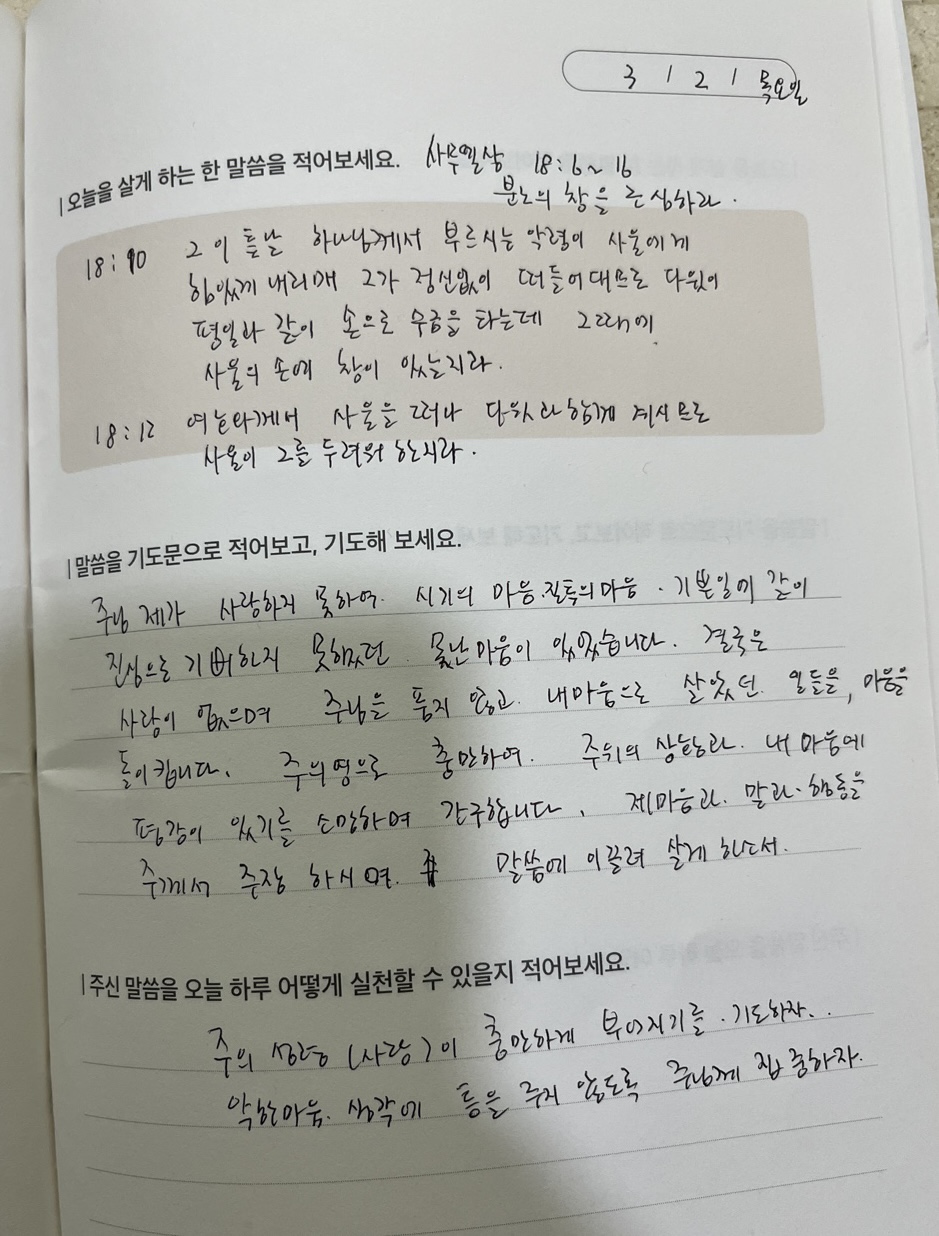 3 / 2 / 목요일
| 오늘을 살게 하는 한 말씀을 적어보세요. 사무엘상 18:6~16
분노의 창을 근심하라.
18:10 그 이튿날 하나님께서 부르시는 악령이 사울에게
힘있게 내리매 그가 정신없이 떠들어대므로 다윗이
평일과 같이 손으로 수금을 타는데 그때에
사울의 손에 창이 있는지라.
18:12 여호와께서 사울을 떠나 다윗과 함께 계시므로
사울이 그를 두려워 한지라.
| 말씀을 기도문으로 적어보고, 기도해 보세요.
주님 제가 사랑하지 못하여. 시기의 마음.질투의 마음. 기쁜일에 같이
진심으로 기뻐하지 못했던. 못난마음이 있었습니다. 결국은
사랑이 없으며 주님을 품지 않고. 내마음으로 살았던. 일들을, 마음을
돌이킵니다. 주의영으로 충만하여. 주위의 상황과. 내 마음에
평강이 있기를 소망하며 간구합니다. 제마음과. 말과.행동을
주께서 주장 하시며. 말씀에 이끌려 살게 하소서.
| 주신 말씀을 오늘 하루 어떻게 실천할 수 있을지 적어보세요.
주의 성령 (사랑)이 충만하게 부어지기를. 기도하자..
악한마음. 생각에 틈을 주지 않도록 주님께 집중하자.